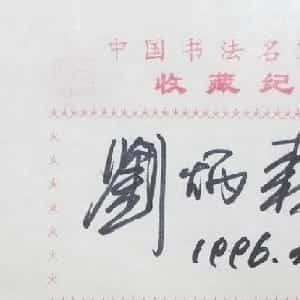 中国书法名
收藏纪
劉炳森
1996.